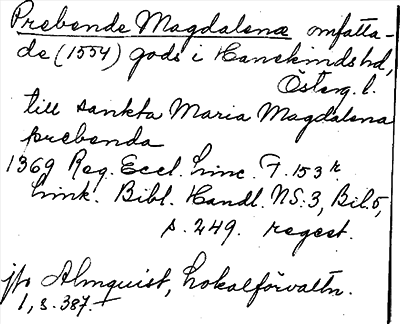 Prebende Magdalenæ omfatta-
de (1554) gods i Hanekindshd,
Österg. l.
till sankta Maria Magdalena
prebenda
1369 Reg. Eccl. Linc. F. 153 r
Link. Bibl. Handl. NS. 3, Bil. 5,
s. 249. regest.
jfr Almquist, Lokalförvaltn.
1, s. 387.